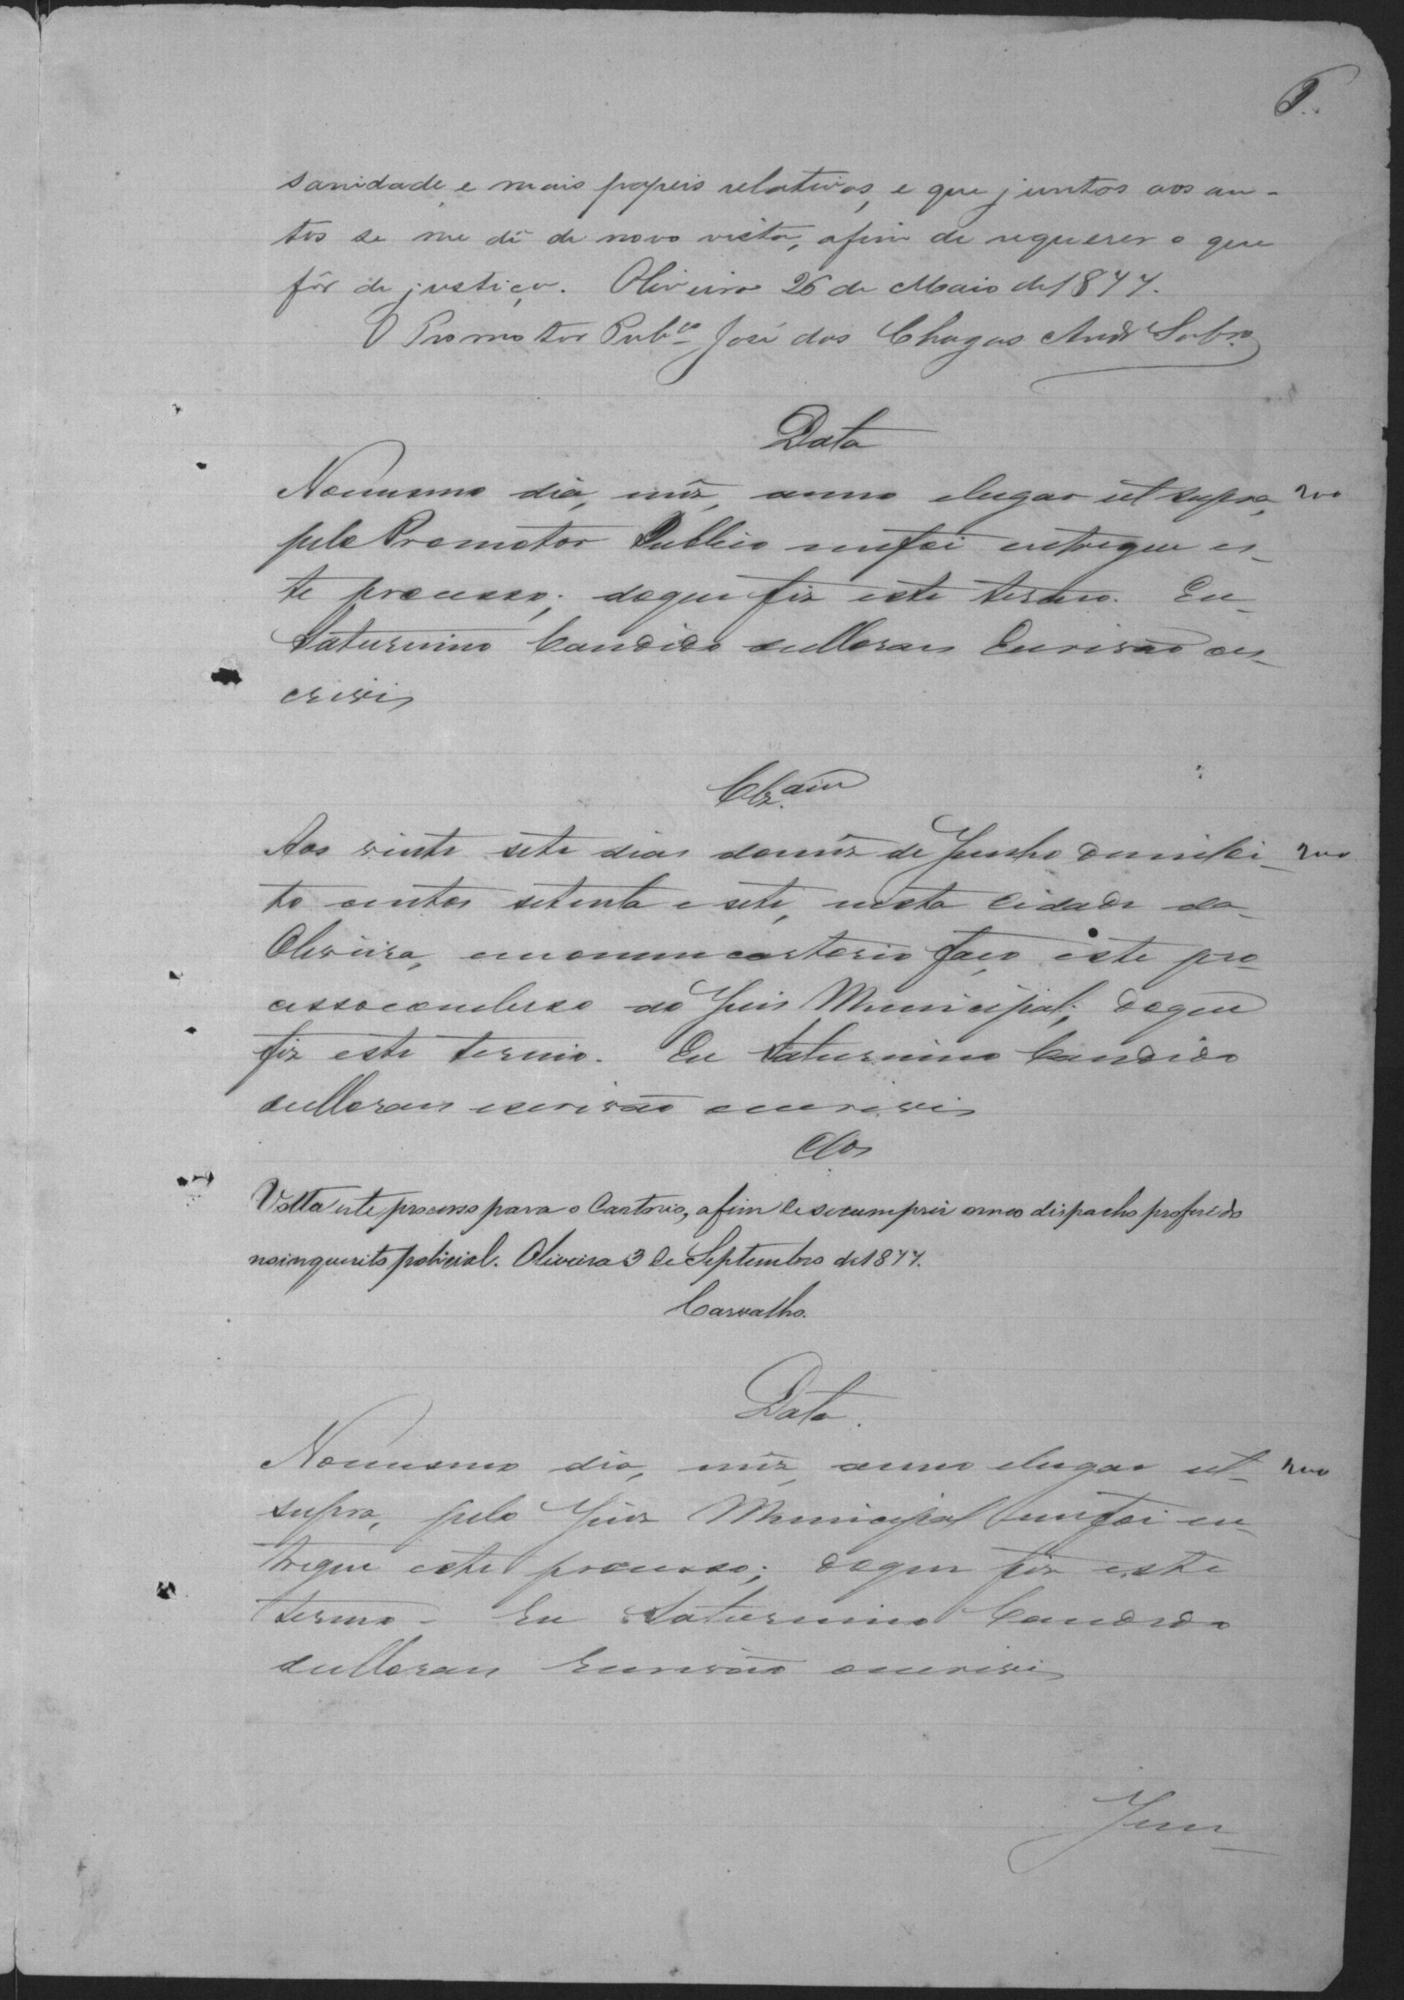 sanidade, e mais papeis relativos, e que juntos aos au-
tos se me dê de novo vista, afim de requerer o que
fôr de justiça. Oliveira 26 de Maio de 1877.
O Promotor Pub.co José das Chagas Andr.e Sobr.o
Data
Nomesmo dia, mêz, anno elugar ut supra, 200
pelo Promotor Publico mefoi entregue es-
te processo; doque fiz este termo. Eu
Saturnino Candido deMoraes Escrivão es-
crivi
Clz.am
Aos vinte sete dias domêz de Junho demiloi- 200
to centos setenta e sete, nesta Cidade da
Oliveira, emomeucartorio faço este pro-
cessoconcluso ao Juiz Municipal; doque
fiz este termo. Eu Saturnino Candido
deMoraes escrivão oescrivi
Clos
Volta este processo para o Cartorio, afim de secumprir omeo dispacho proferido
noinquerito policial. Oliveira 3 de Septembro de 1877.
Carvalho.
Data.
Nomesmo dia, mêz, anno elugar ut- 200
supra, pelo Juiz Municipal mefoi en-
tregue este processo; doque fiz este
termo. Eu Saturnino Candido
deMoraes Escrivão oescrivi
Jun-